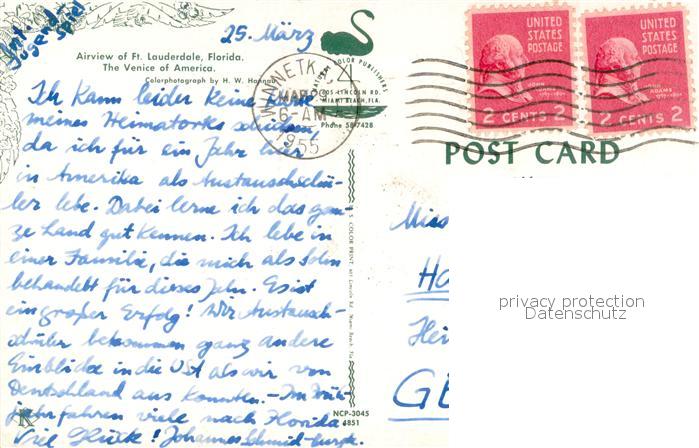 Int.
Jugend
spiel
25. März
Airview of Ft. Lauderdale, Florida.
The Venice of America.
Colorphotograph by H. W. Hannau
Ich kann leider keine Karte
meines Heimatorts schicken,
da ich für ein Jahr hier
in Amerika als Austauschschü-
ler lebe. Dabei lerne ich das gan-
ze Land gut kennen. Ich lebe in
einer Familie, die mich als Sohn
behandelt für dieses Jahr. Es ist
ein großer Erfolg! Wir Austausch-
schüler bekommen ganz andere
Einblicke in die USA als wir von
Deutschland aus konnten. – Im Früh-
jahr fahren viele nach Florida.
Viel Glück! Johannes Schmid-
WINNETKA
MAR
6-AM
1955
COLOR PUBLISHERS
LINCOLN RD.
MIAMI BEACH, FLA.
Phone 58-7428
NCP-3045
4851
K
UNITED
STATES
POSTAGE
JOHN
ADAMS
2 CENTS 2
UNITED
STATES
POSTAGE
JOHN
ADAMS
2 CENTS 2
POST CARD
Miss
Ho
Hei
GE
privacy protection
Datenschutz